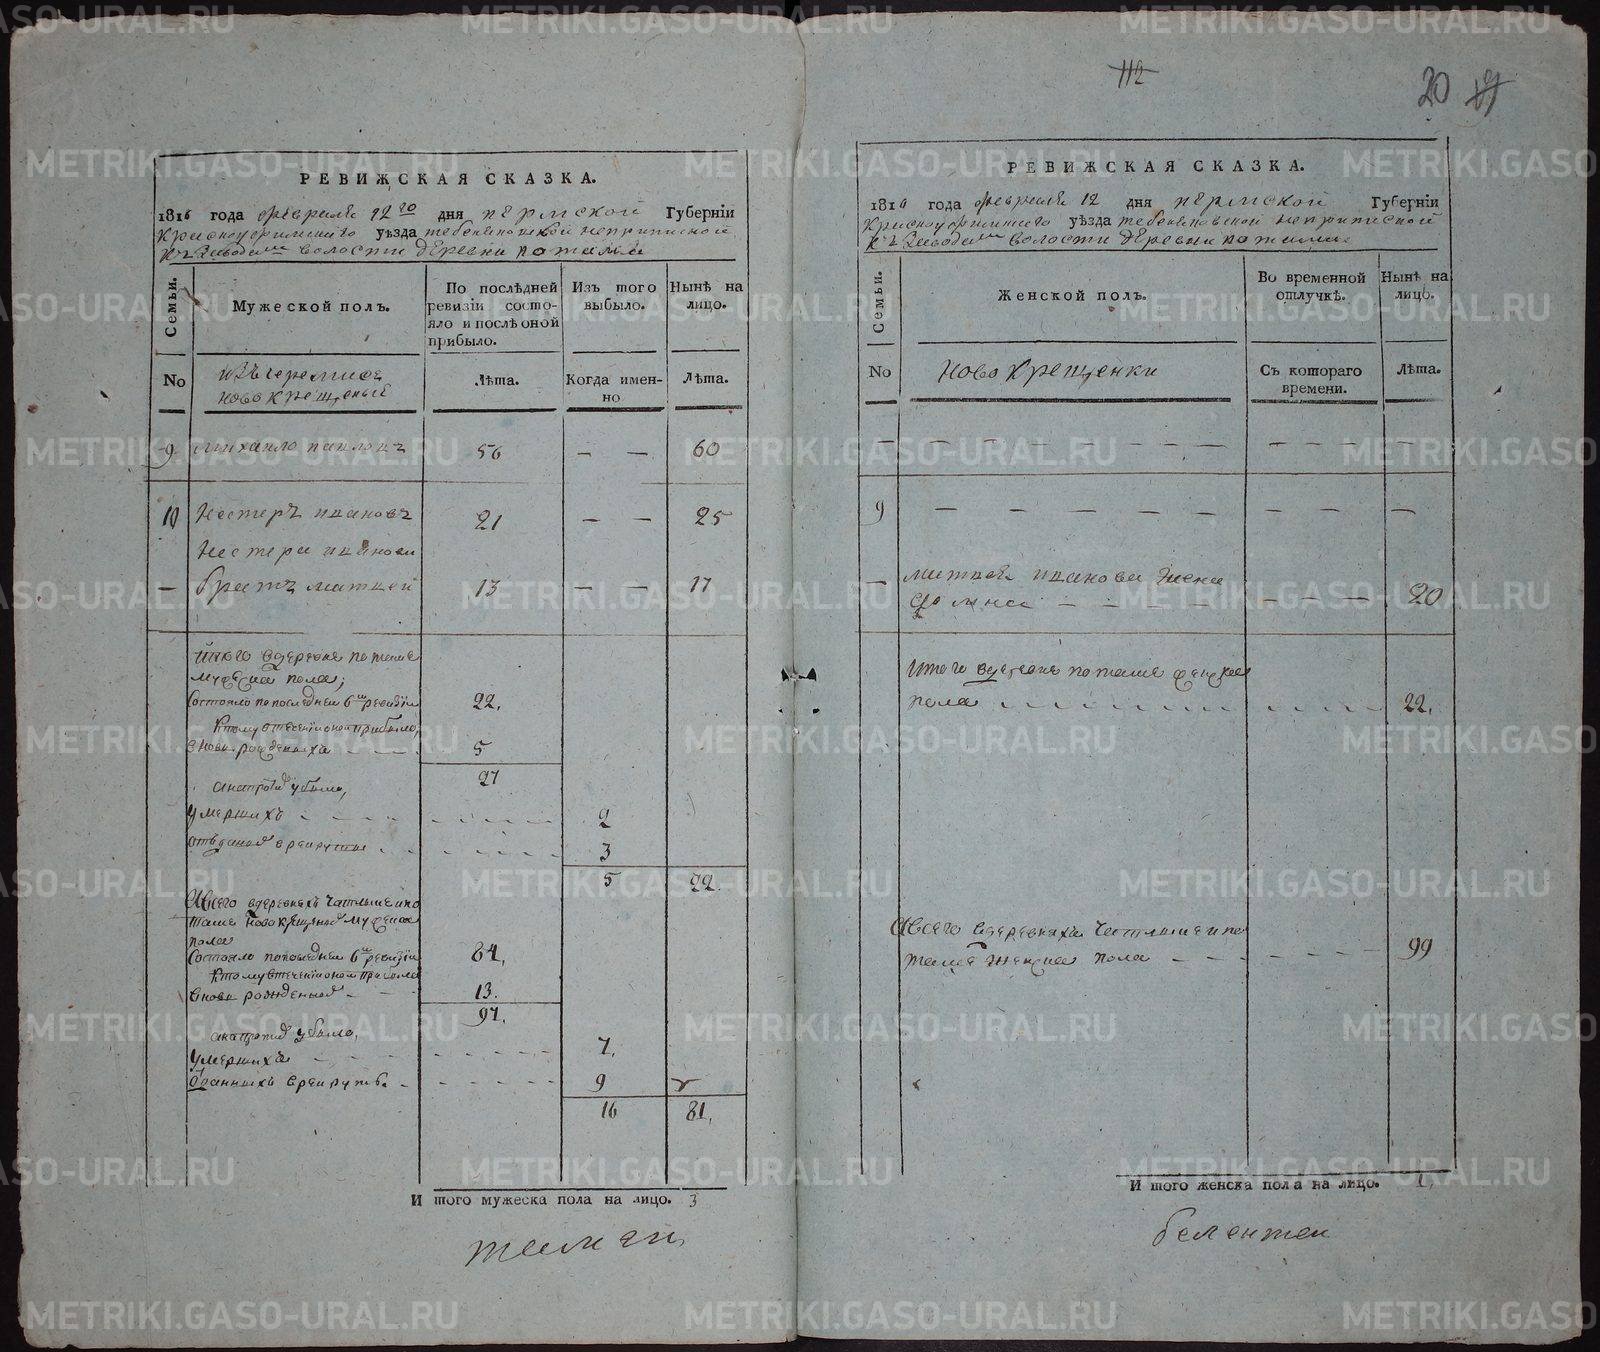 112
20
РЕВИЖСКАЯ СКАЗКА.
1816 года февраля 12го дня пермской Губерніи
Красноуфимского уѣзда неприписной
къ заводамъ волости деревни потама
Семьи.
Мужеской полъ.
По послѣдней ревизіи состо-
яло и послѣ оной
прибыло.
Изъ того
выбыло.
Нынѣ на
лицо.
No
изъ черемисъ
новокрещеные
Лѣта.
Когда имен-
но
Лѣта.
9 михаило павловъ 56 — — 60
10 Нестеръ ивановъ 21 — — 25
Нестера иванова
— братъ матвей 13 — — 17
Итого вдеревне потаме
мужеска пола;
Состояло попоследней 6й ревизіи 22.
Ктому втеченіи оной прибыло,
вновь рожденныхъ 5
27
убыло,
умершихъ 2
врекруты 3
5 22.
Авсего вдеревняхъ ипо
таме новокрещеныхъ мужеска
пола
Состояло попоследней 6й ревизіи 84.
Ктому втеченіи оной прибыло
вновь рожденныхъ 13.
97.
убыло,
умершихъ 7.
врекруты 9
16 81.
И того мужеска пола на лицо. 3
РЕВИЖСКАЯ СКАЗКА.
1816 года февраля 12 дня пермской Губерніи
Красноуфимского уѣзда неприписной
къ заводамъ волости деревни потама
Семьи.
Женской полъ.
Во временной
отлучкѣ.
Нынѣ на
лицо.
No
новокрещенки
Съ котораго
времени.
Лѣта.
— — — — — — — —
9 — — — — — — — —
— матвея иванова жена
фомна — — — 20
Итого вдеревне потаме женска
пола 22.
Авсего вдеревняхъ ипо
таме женска пола 99
И того женска пола на лицо. 1.
METRIKI.GASO-URAL.RU